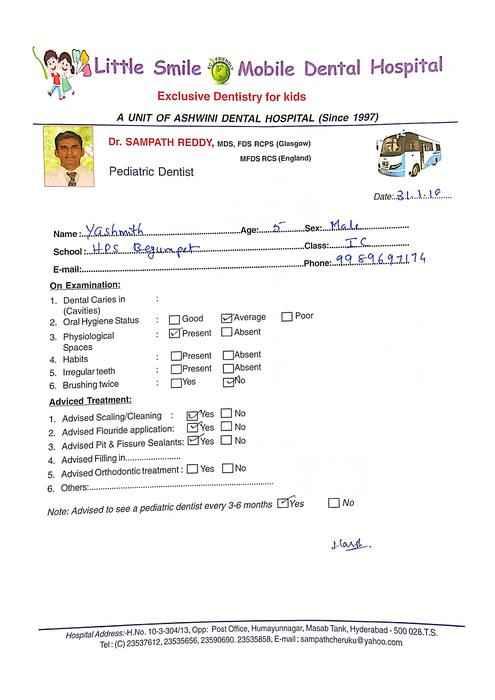 Little Smile Mobile Dental Hospital
ECO FRIENDLY
Exclusive Dentistry for kids
A UNIT OF ASHWINI DENTAL HOSPITAL (Since 1997)
Dr. SAMPATH REDDY, MDS, FDS RCPS (Glasgow)
MFDS RCS (England)
Pediatric Dentist
Date: 31.1.18
Name: Yashmith Age: 5 Sex: Male
School: HPS Begumpet Class: I C
E-mail: Phone: 9989697174
On Examination:
1. Dental Caries in (Cavities) :
2. Oral Hygiene Status : Good Average Poor
3. Physiological Spaces : Present Absent
4. Habits : Present Absent
5. Irregular teeth : Present Absent
6. Brushing twice : Yes No
Adviced Treatment:
1. Advised Scaling/Cleaning : Yes No
2. Advised Flouride application: Yes No
3. Advised Pit & Fissure Sealants: Yes No
4. Advised Filling in
5. Advised Orthodontic treatment : Yes No
6. Others:
Note: Advised to see a pediatric dentist every 3-6 months Yes No
Hospital Address:-H.No. 10-3-304/13, Opp: Post Office, Humayunnagar, Masab Tank, Hyderabad - 500 028.T.S.
Tel : (C) 23537612, 23535656, 23590690. 23535858, E-mail : sampathcheruku@yahoo.com